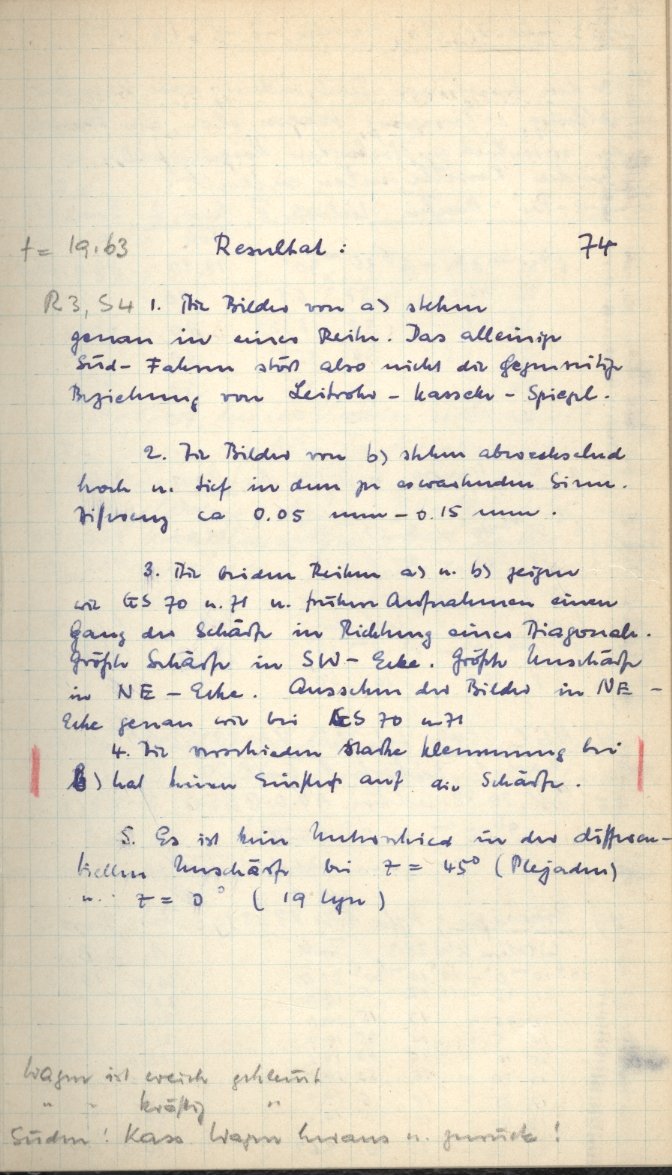 t = 19.63 Resultat : 74
R3, S4 1. Die Bilder von a) stehen
genau in einer Reihe. Das alleinige
Süd-Fahren stört also nicht die gegenseitige
Beziehung von Leitrohr - Kassette - Spiegel.
2. Die Bilder von b) stehen abwechselnd
hoch u. tief in dem zu erwartenden Sinn.
Differenz ca 0.05 mm - 0.15 mm.
3. Die beiden Reihen a) u. b) zeigen
wie GS 70 u. 71 u. frühere Aufnahmen einen
Gang der Schärfe in Richtung einer Diagonale.
Größte Schärfe in SW - Ecke. Größte Unschärfe
in NE - Ecke. Aussehen der Bilder in NE -
Ecke genau wie bei GS 70 u 71
4. Die verschieden starke Klemmung bei
b) hat keinen Einfluß auf die Schärfe.
5. Es ist kein Unterschied in der differen-
tiellen Unschärfe bei z = 45° (Plejaden)
u. z = 0° ( 19 Lyn )
Wagen ist weich geklemmt
" " kräftig "
Süden ! Kass Wagen heraus u. zurück !